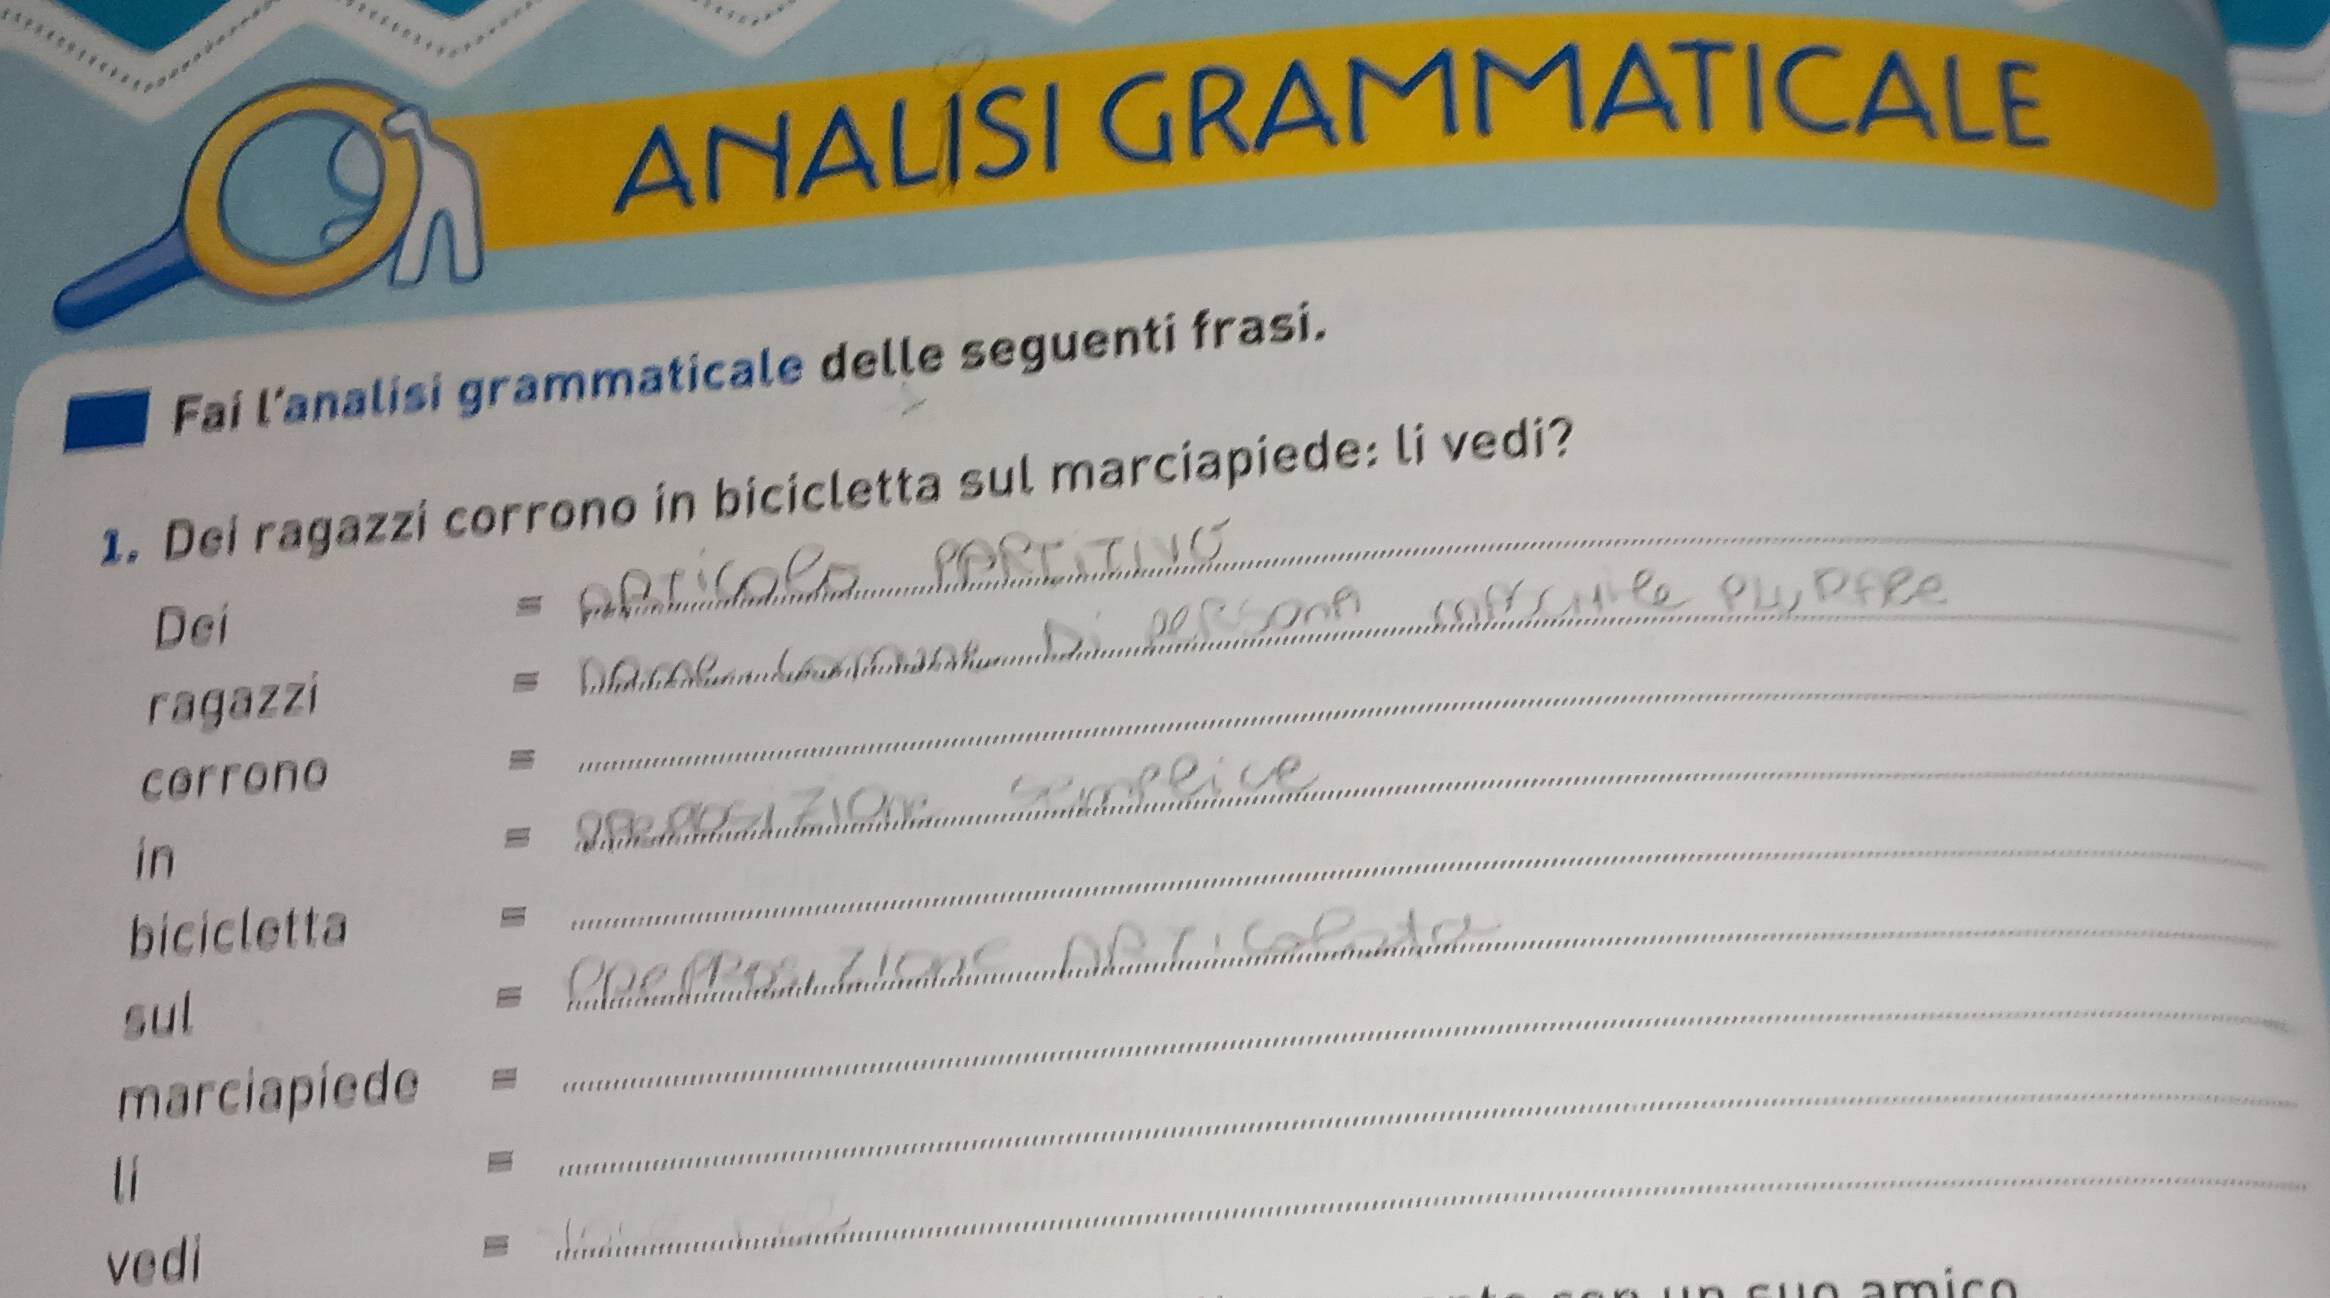 ANALISI GRAMMATICALE
Fai l'analisi grammaticale delle seguenti frasi.
1. Dei ragazzi corrono in bicicletta sul marciapiede: li vedi?
Dei = ARTICOLO PARTITIVO
ragazzi = NOME comune Di persona maschile PLURALe
corrono =
in = preposizione semplice
bicicletta =
sul = PRePPOSIZIONE ARTICOlata
marciapiede =
li =
vedi =
con un suo amico